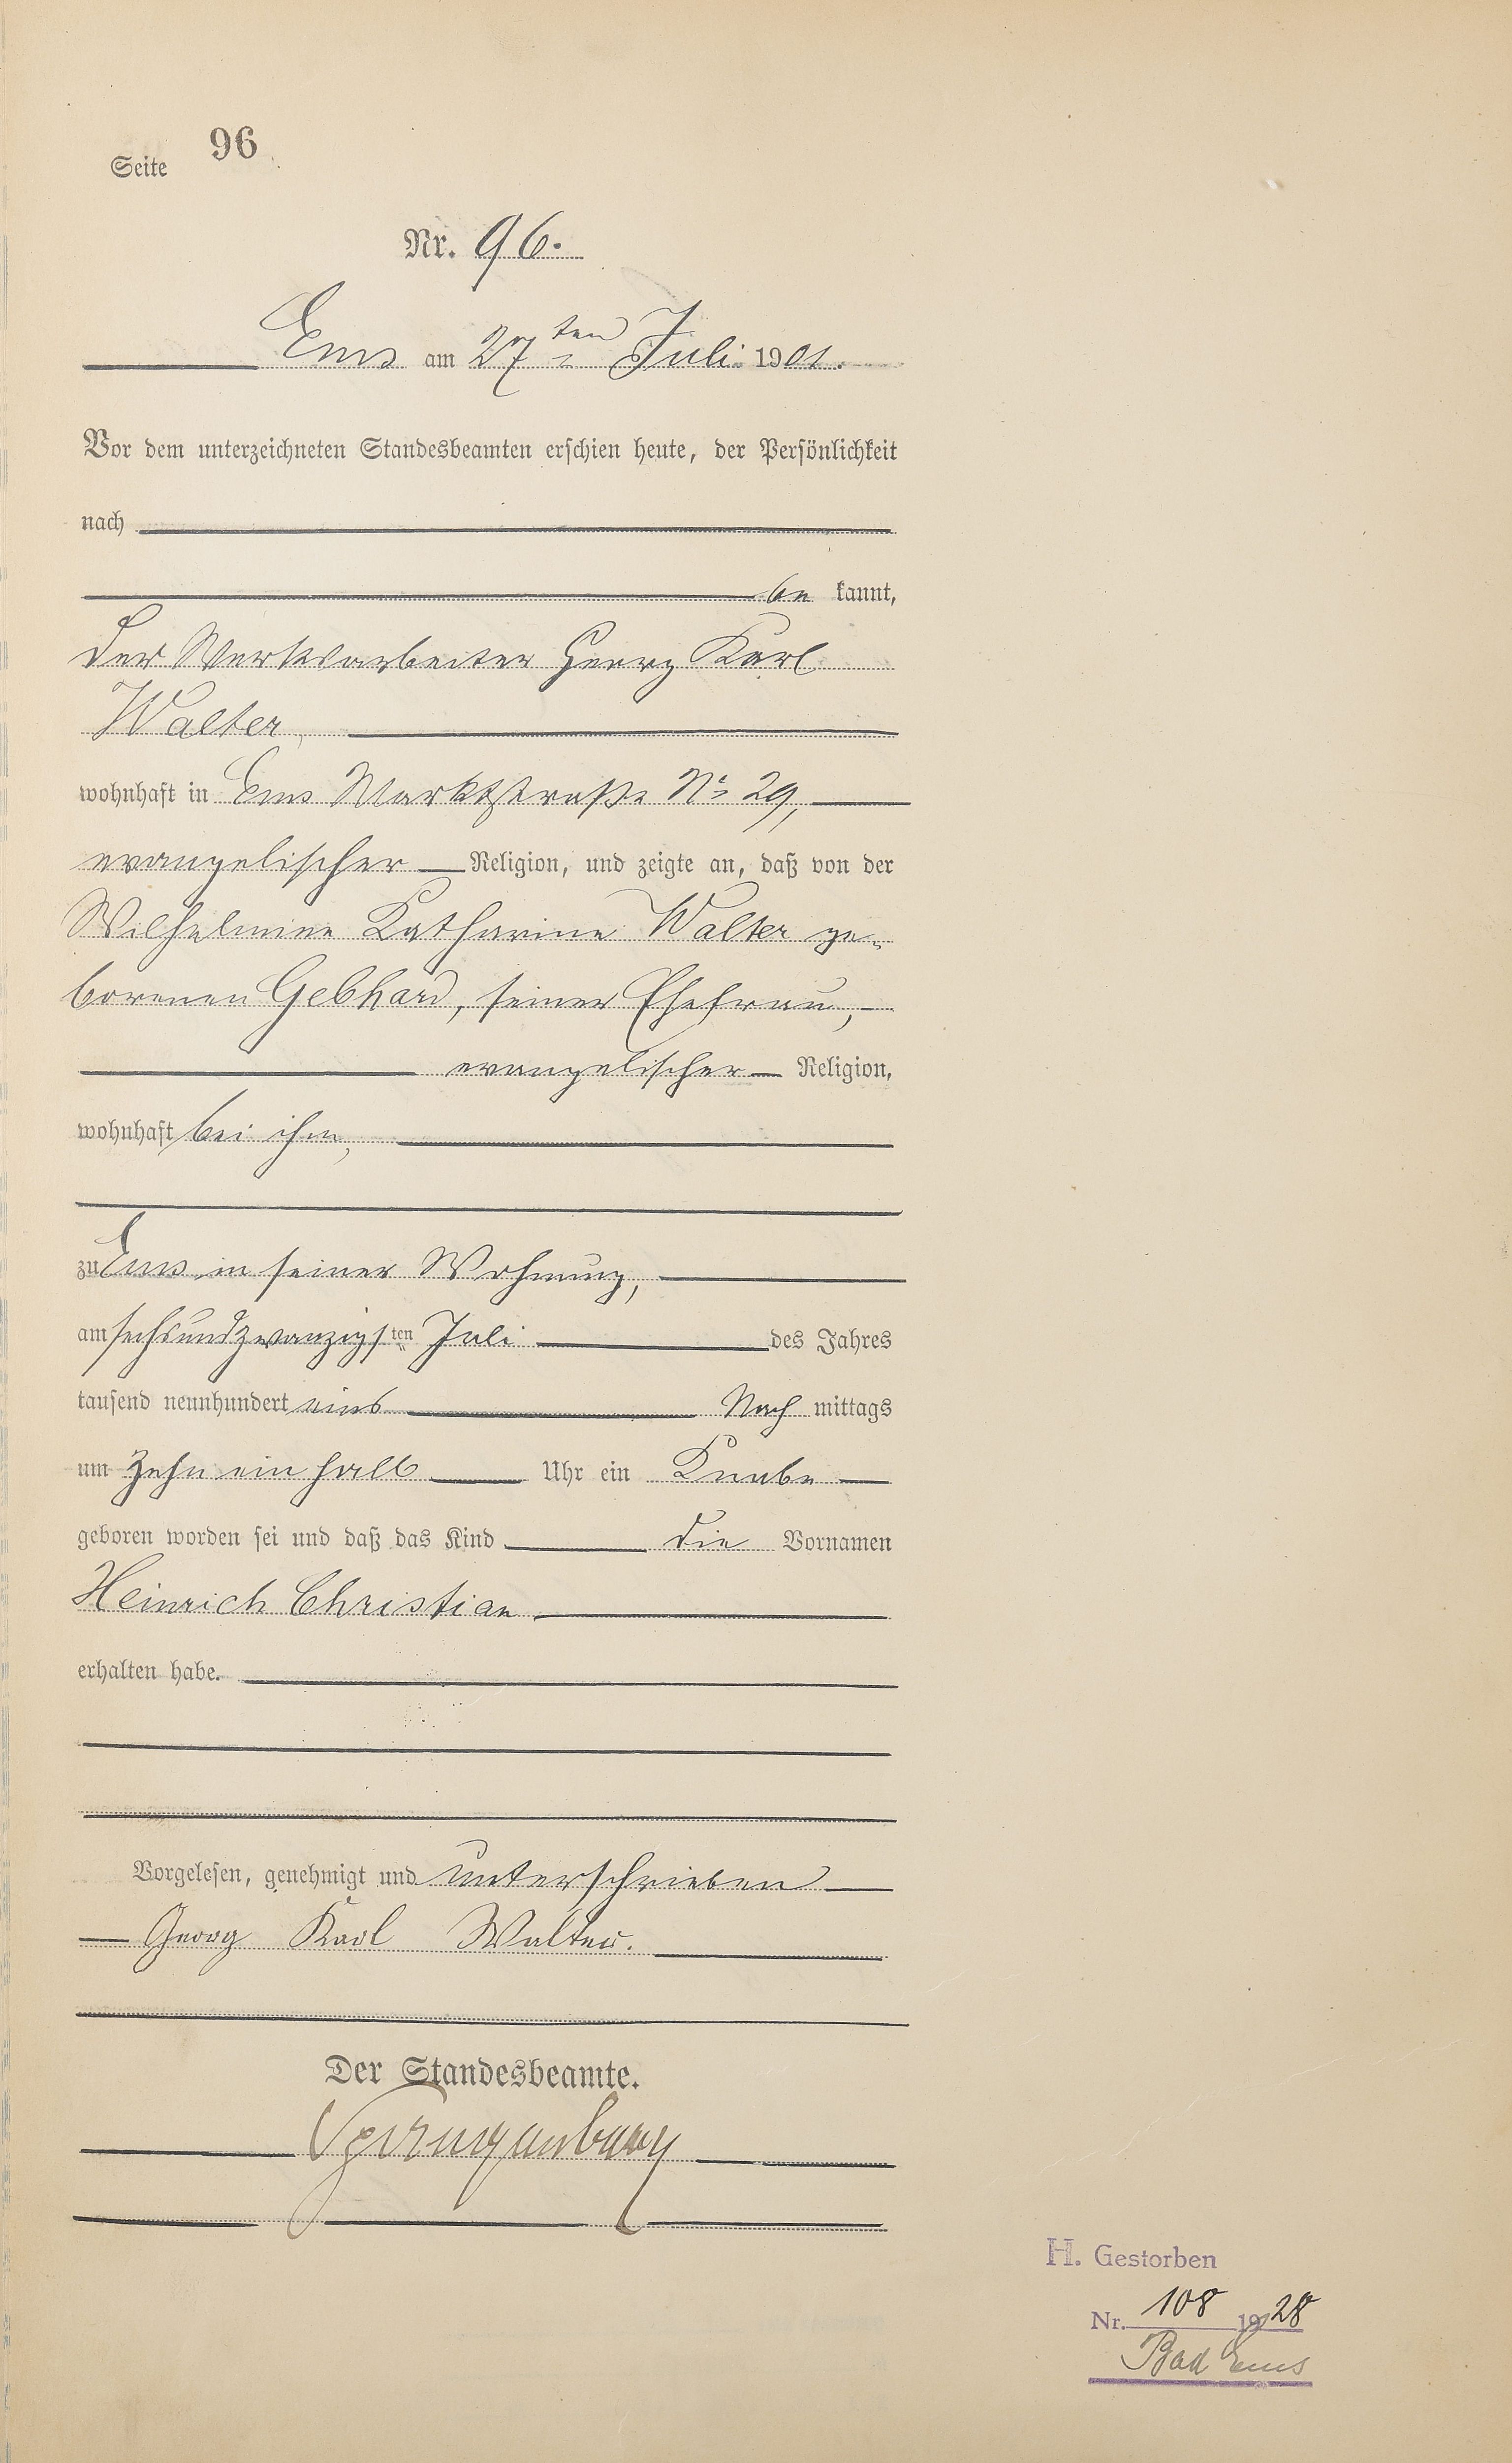 Seite 96
Nr. 96.
Ems am 27ten Juli 1901.
Vor dem unterzeichneten Standesbeamten erschien heute, der Persönlichkeit
nach
be kannt,
der Werksarbeiter Georg Karl
Walter,
wohnhaft in Ems Marktstraße No 29,
evangelischer Religion, und zeigte an, daß von der
Wilhelmine Katharine Walter ge-
borenen Gebhard, seiner Ehefrau,
evangelischer Religion,
wohnhaft bei ihm,
zu Ems in seiner Wohnung,
am sechsundzwanzigsten Juli des Jahres
tausend neunhundert eins Nach mittags
um zehn ein halb Uhr ein Knabe
geboren worden sei und daß das Kind die Vornamen
Heinrich Christian
erhalten habe.
Vorgelesen, genehmigt und unterschrieben
Georg Karl Walter.
Der Standesbeamte.
H. Gestorben
Nr. 108 1928
Bad Ems